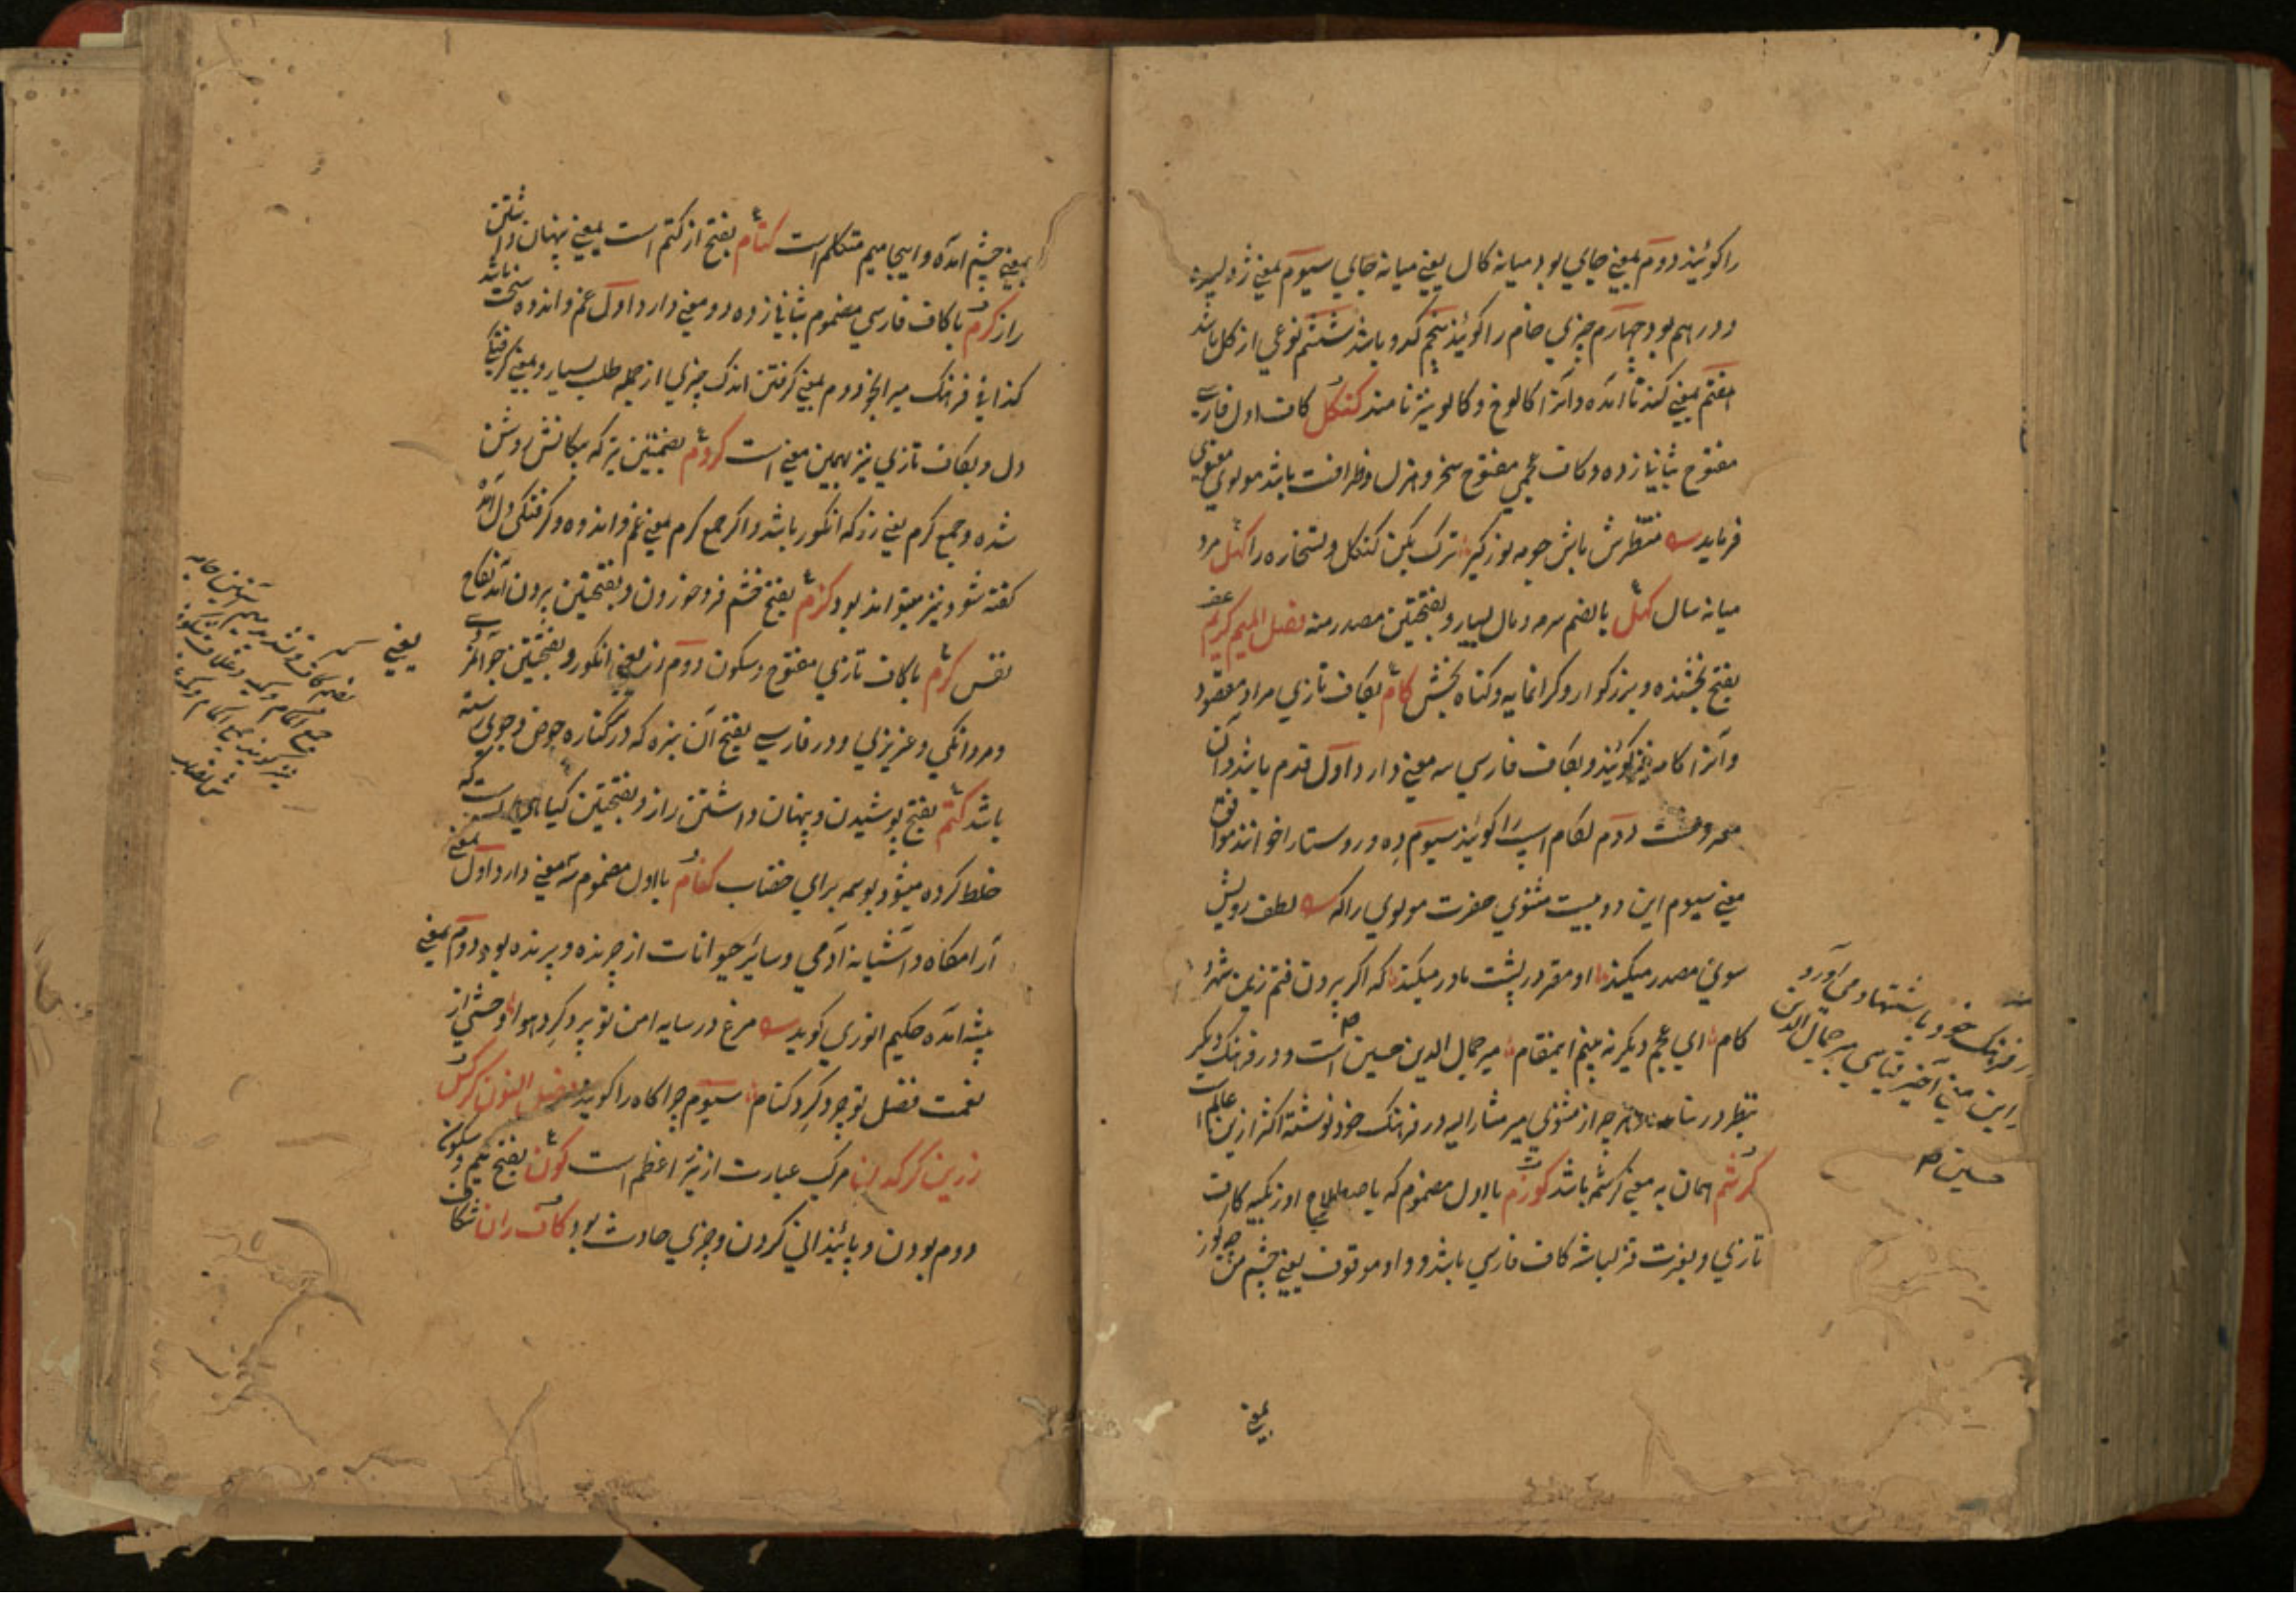 را کویند دوم بمعنی جای بود میانه کال یعنی میانه جای سیوم بمعنی ژولیده
و درهم بود چهارم چیزی خام را کویند پنجم کدو باشد ششم نوعی از کل باشد
هفتم بمعنی کند نا آمده و آنرا کالوخ و کالو نیز نامند کنکل کاف اول فارسی
مفتوح بثانی زده و کاف عجمی مفتوح سخر و هزل و ظرافت باشد مولوی معنوی
فرماید منتظرش باش چو مه نور کیر ترک بکن کنکل و نستخاره را کهل مرد
میانه سال کحل بالضم سرمه و مال بسیار و بفتحتین مصدر منه فصل المیم کریم
بفتح بخشنده و بزرکوار و کرانمایه و کناه بخش کام بکاف تازی مراد و مقصود
و آنرا کامه نیز کویند و بکاف فارسی سه معنی دارد اول قدم باشد و آن
معروفست دوم لکام اسپ را کویند سیوم ده و روستا را خوانند موافق
معنی سیوم این دو بیت مثنوی حضرت مولوی را که لطف رویش
سوی مصدر میکند او مقر در پشت مادر میکند که اکر برون فتم زین شهر
کام ای عجم دیکر نه بینم ایمقام میر جمال الدین حسین است و در فرهنک دیکر
بنظر در نیامده هر چه از مثنوی میر مشار الیه در فرهنک خود نوشته اکثر ازین عالم است
کرشم همان به معنی کرشمه باشد کوزم با اول مضموم که باصطلاح اوزبکیه کاف
تازی و بلغت قزلباش کاف فارسی باشد و واو موقوف یعنی چشم من چه کوز
فرهنک خود باستشهاد می آورد
این معنی آخر قیاسی میر جمال الدین
حسین
بمعنی
بمعنی چشم آمده و اینجا میم متکلم است کتام بفتح از کتم است بمعنی پنهان داشتن
راز کرم با کاف فارسی مضموم بثانی زده دو معنی دارد اول غم و اندوه سخت باشد
کذا فی فرهنک میر انجو دوم بمعنی کرفتن اندک چیزی از جمله طلب بسیار و بمعنی کرفتکی
دل و بکاف تازی نیز بهمین معنی است کروم بضمتین تیر که پیکانش روشن
شده و جمع کرم یعنی رز که انکور باشد و اکر جمع کرم بمعنی غم و اندوه و کرفتکی دل آمده
کفته شود نیز میتواند بود کزم بفتح خشم فرو خوردن و بفتحتین برون آمدنکاه
نفس کرم با کاف تازی مفتوح و سکون دوم رز یعنی انکور و بفتحتین جوانمردی
و مردانکی و عزیزی و در فارسی بفتح آن سبزه که در کناره حوض و جوی رسته
باشد کتم بفتح پوشیدن و پنهان داشتن راز و بفتحتین کیاهی است که
خلط کرده میشود بوسمه برای خضاب کنام با اول مضموم سه معنی دارد اول بمعنی
آرامکاه و آشیانه آدمی و سایر حیوانات از چرنده و پرنده بود دوم بمعنی
بیشه آمده حکیم انوری کوید مرغ در سایه امن تو پرد کرد هوا وحشی از
نعمت فضل تو چرد کرد کنام سیوم چراکاه را کویند فصل النون کرکس
زرین کرکدن مرکب عبارت از نیر اعظم است کون بفتح یکم و سکون
دوم بودن و پائیندانی کردن و چیزی حادث بود کاف ران شکاف
یعنی